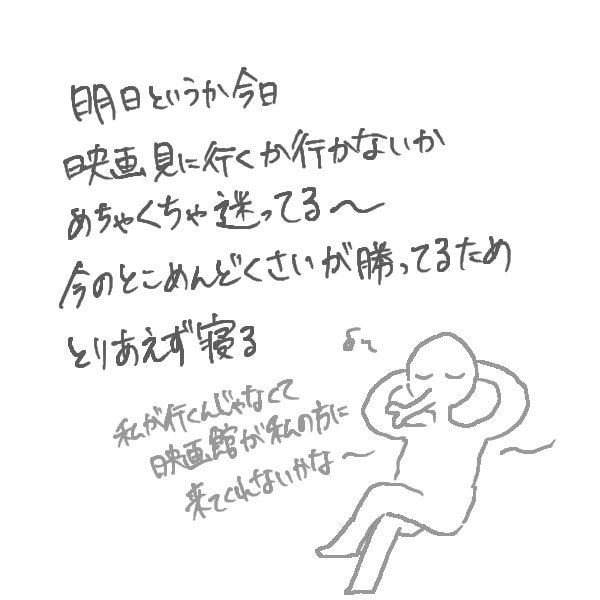 明日というか今日
映画見に行くか行かないか
めちゃくちゃ迷ってる〜
今のとこめんどくさいが勝ってるため
とりあえず寝る
私が行くんじゃなくて
映画館が私の方に
来てくれないかな〜